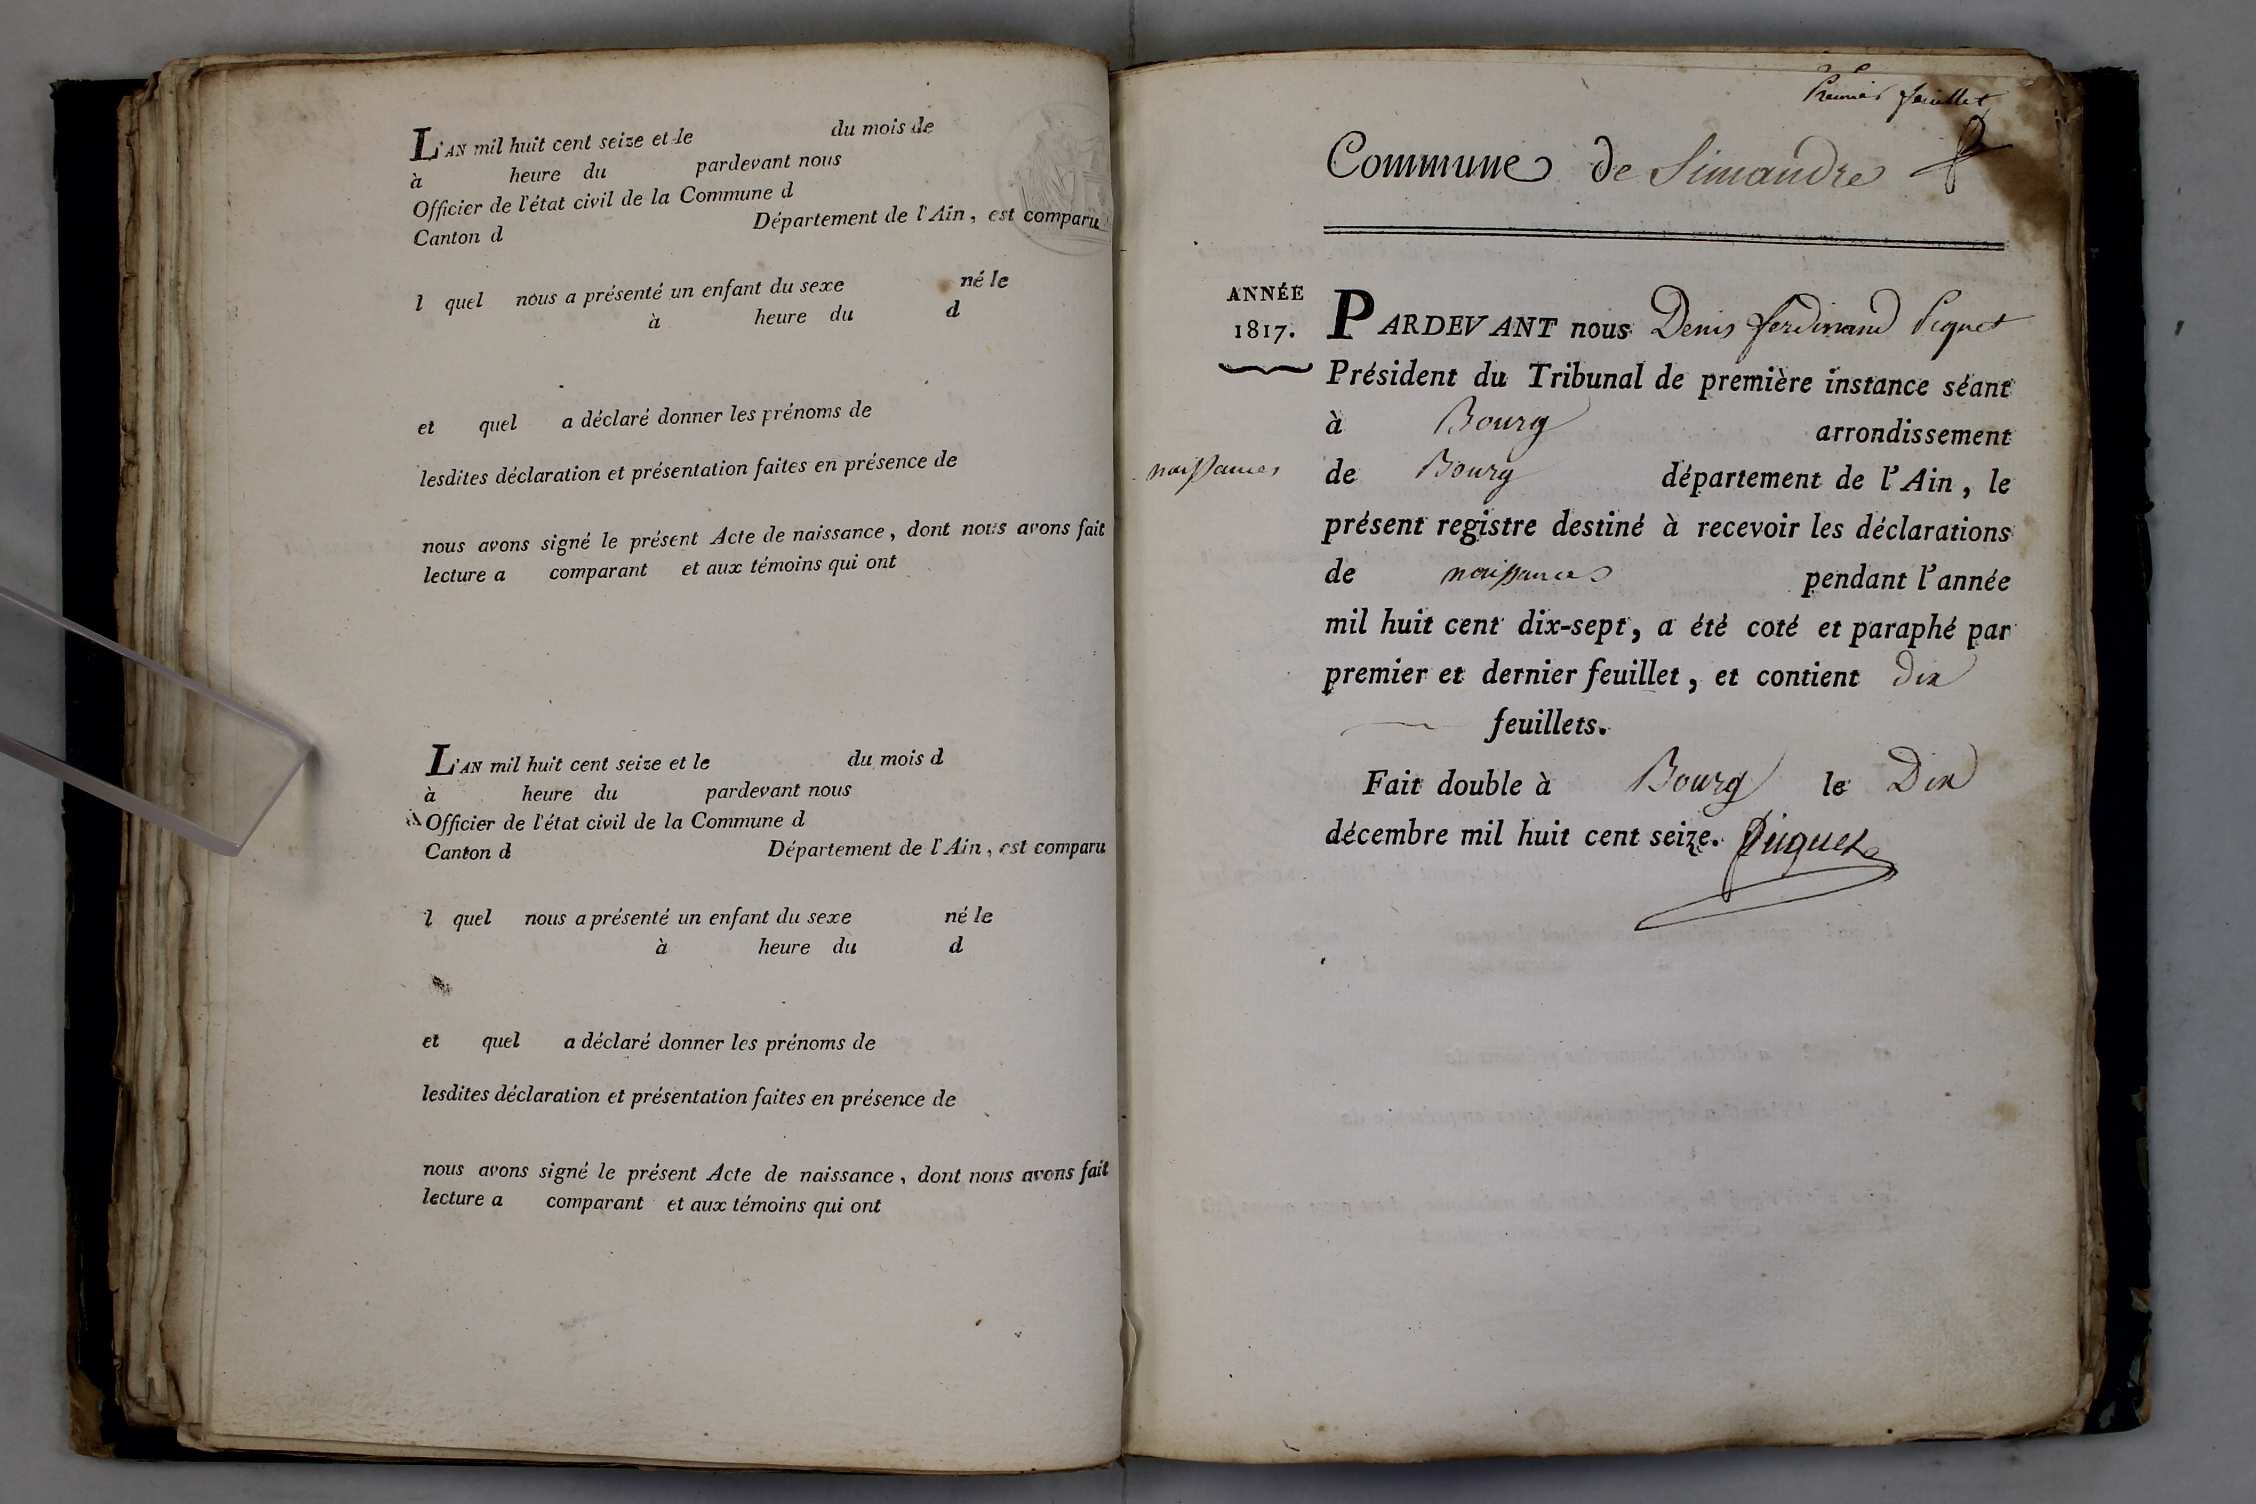 L'AN mil huit cent seize et le du mois de
à heure du pardevant nous
Officier de l'état civil de la Commune d
Canton d Département de l'Ain, est comparu
l quel nous a présenté un enfant du sexe né le
à heure du d
et quel a déclaré donner les prénoms de
lesdites déclaration et présentation faites en présence de
nous avons signé le présent Acte de naissance, dont nous avons fait
lecture a comparant et aux témoins qui ont
L'AN mil huit cent seize et le du mois d
à heure du pardevant nous
Officier de l'état civil de la Commune d
Canton d Département de l'Ain, est comparu
l quel nous a présenté un enfant du sexe né le
à heure du d
et quel a déclaré donner les prénoms de
lesdites déclaration et présentation faites en présence de
nous avons signé le présent Acte de naissance, dont nous avons fait
lecture a comparant et aux témoins qui ont
Premier feuillet
Commune de Simandre
ANNÉE
1817.
naissances
PARDEVANT nous Denis ferdinand Piquet
Président du Tribunal de première instance séant
à Bourg arrondissement
de Bourg département de l'Ain, le
présent registre destiné à recevoir les déclarations
de naissances pendant l'année
mil huit cent dix-sept, a été coté et paraphé par
premier et dernier feuillet, et contient dix
feuillets.
Fait double à Bourg le Dix
décembre mil huit cent seize. Piquet